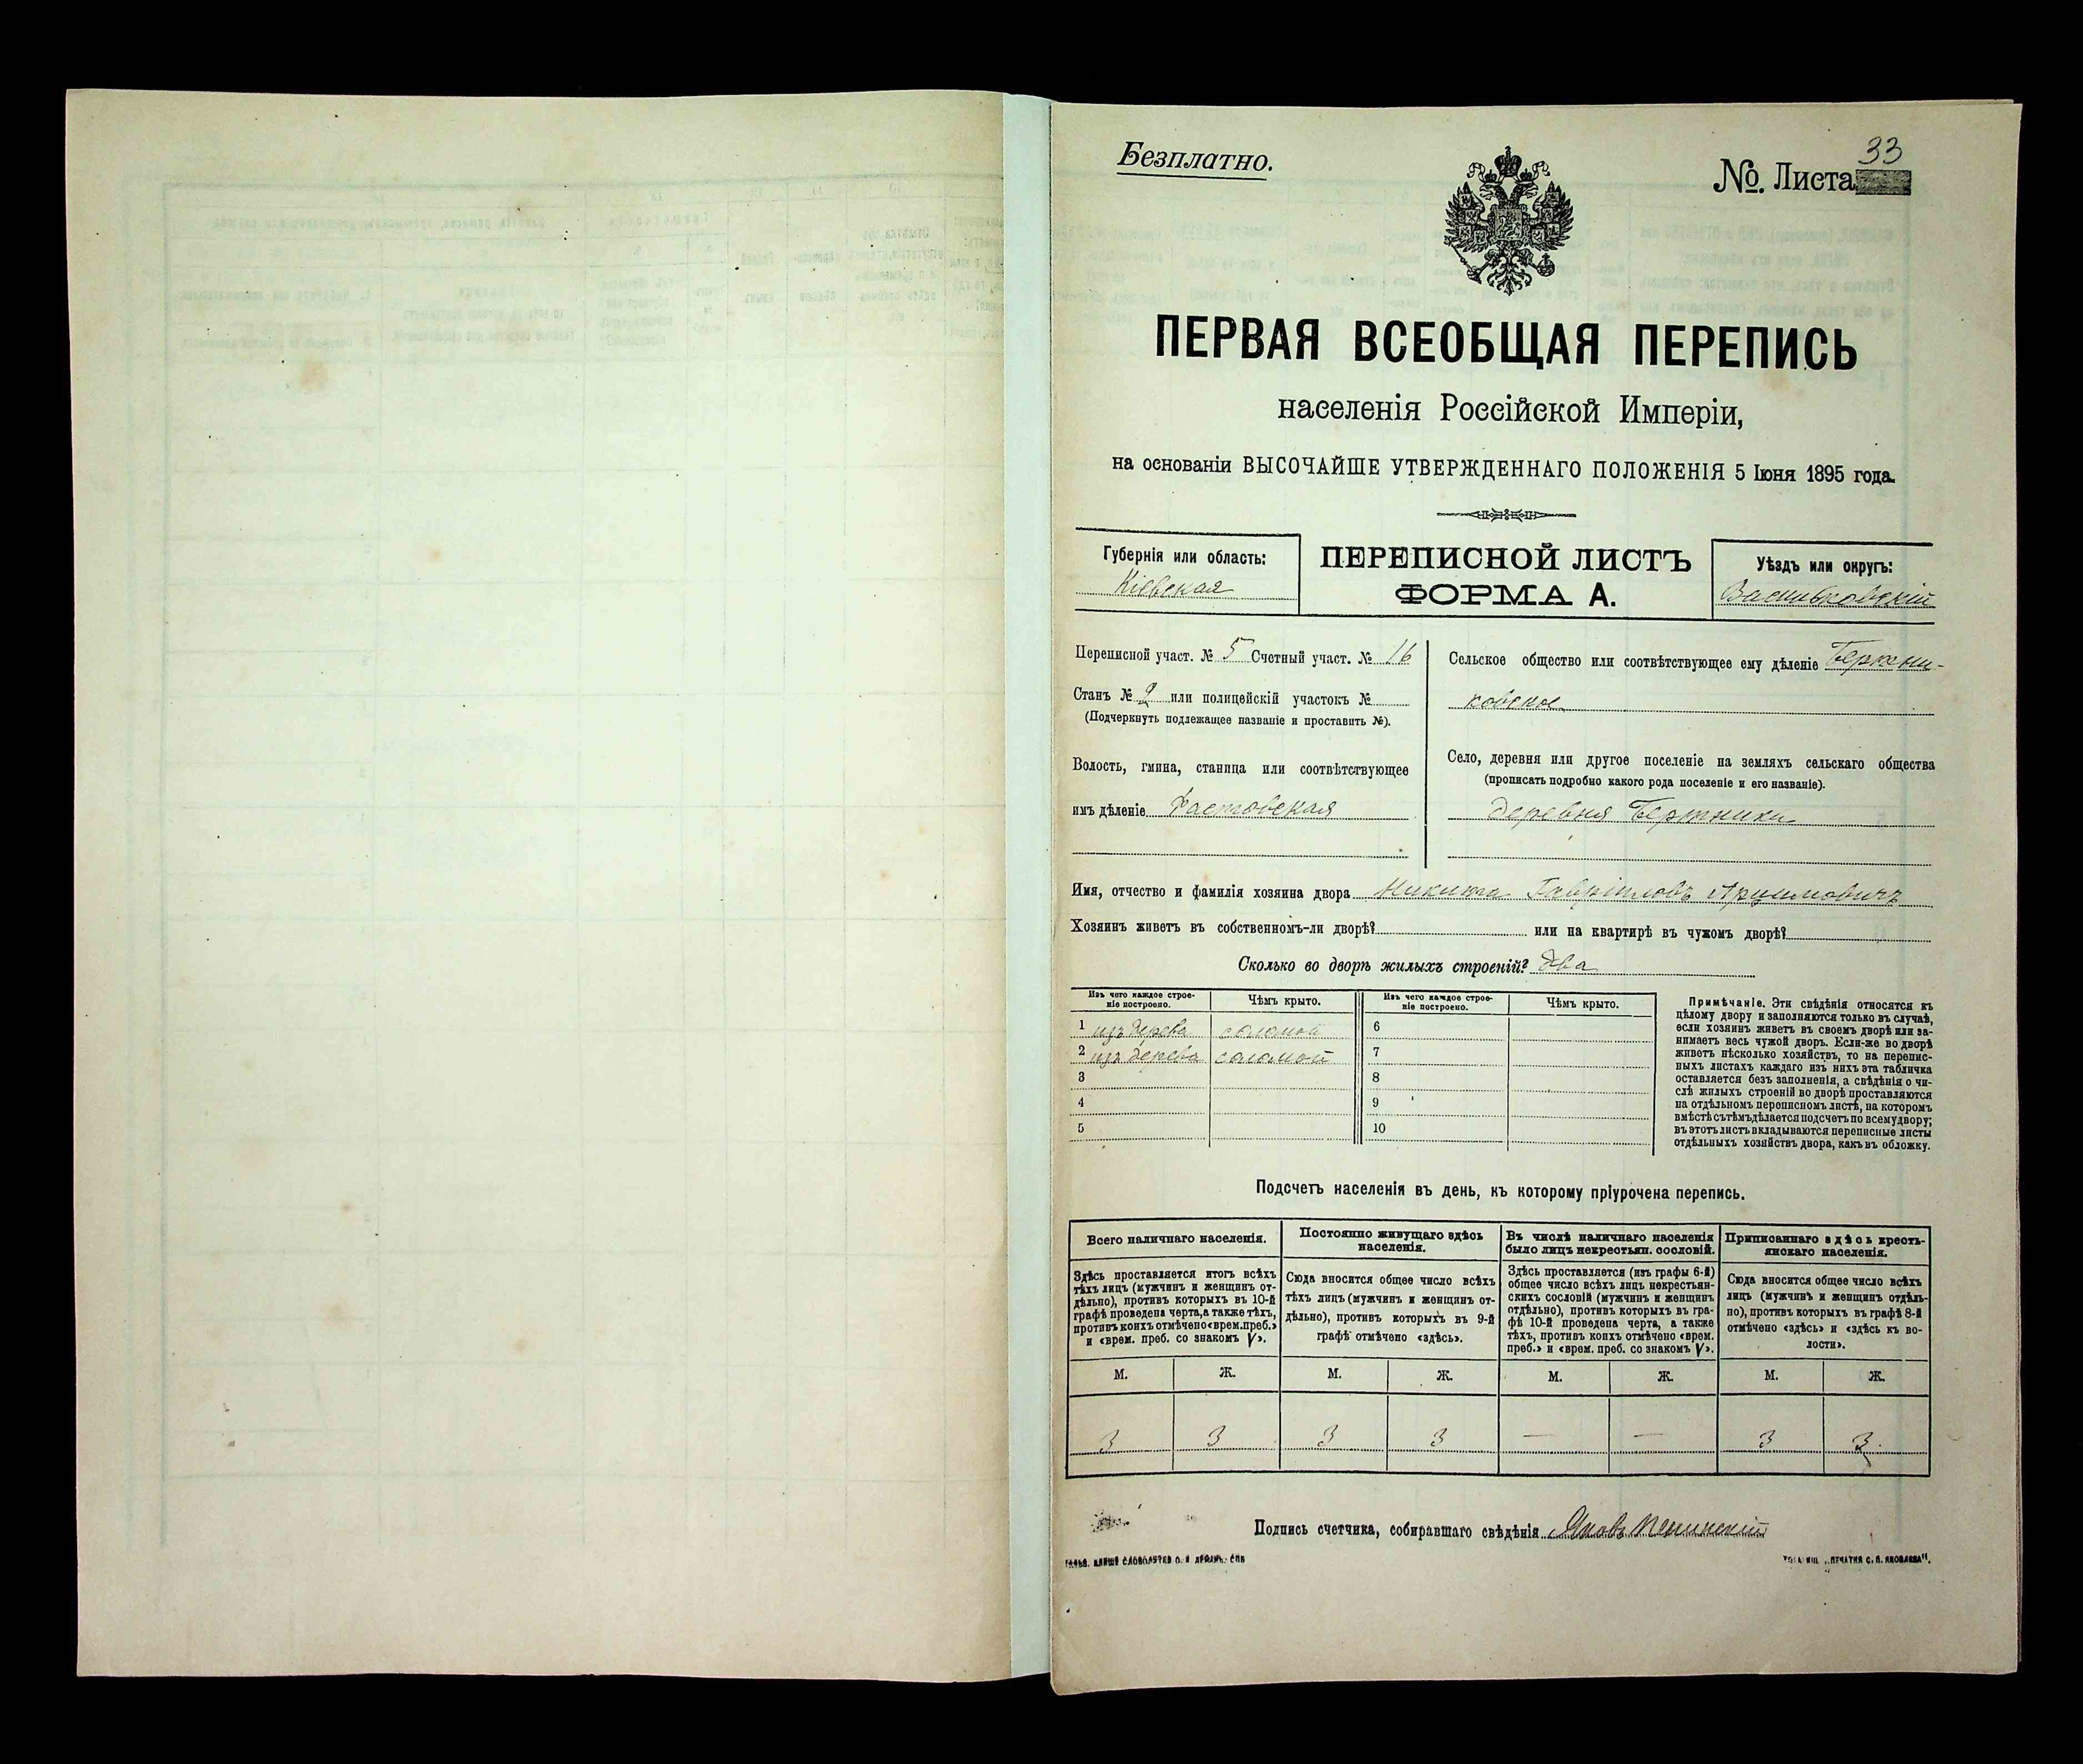 Безплатно.
33
№. Листа
ПЕРВАЯ ВСЕОБЩАЯ ПЕРЕПИСЬ
населенія Россійской Имперіи,
на основаніи ВЫСОЧАЙШЕ УТВЕРЖДЕННАГО ПОЛОЖЕНІЯ 5 Іюня 1895 года.
Губернія или область:
Кіевская
ПЕРЕПИСНОЙ ЛИСТЪ
ФОРМА А.
Уѣздъ или округъ:
Васильковскій
Переписной участ. № 5 Счетный участ. № 16
Станъ № 2 или полицейскій участокъ №
(Подчеркнуть подлежащее названіе и проставить №).
Волость, гмина, станица или соотвѣтствующее
имъ дѣленіе Фастовская
Сельское общество или соотвѣтствующее ему дѣленіе
Село, деревня или другое поселеніе на земляхъ сельскаго общества
(прописать подробно какого рода поселеніе и его названіе).
деревня Бертники
Имя, отчество и фамилія хозяина двора Никита Гавріиловъ
Хозяинъ живетъ въ собственномъ-ли дворѣ? или на квартирѣ въ чужомъ дворѣ?
Сколько во дворѣ жилыхъ строеній? два
Изъ чего каждое строе-
ніе построено.
Чѣмъ крыто.
Изъ чего каждое строе-
ніе построено.
Чѣмъ крыто.
1 изъ дерева соломой 6
2 изъ дерева соломой 7
3 8
4 9
5 10
Примѣчаніе. Эти свѣдѣнія относятся къ
цѣлому двору и заполняются только въ случаѣ,
если хозяинъ живетъ въ своемъ дворѣ или за-
нимаетъ весь чужой дворъ. Если-же во дворѣ
живетъ нѣсколько хозяйствъ, то на перепис-
ныхъ листахъ каждаго изъ нихъ эта табличка
оставляется безъ заполненія, а свѣдѣнія о чи-
слѣ жилыхъ строеній во дворѣ проставляются
на отдѣльномъ переписномъ листѣ, на которомъ
вмѣстѣ съ тѣмъ дѣлается подсчетъ по всему двору;
въ этотъ листъ вкладываются переписные листы
отдѣльныхъ хозяйствъ двора, какъ въ обложку.
Подсчетъ населенія въ день, къ которому пріурочена перепись.
Всего наличнаго населенія.
Здѣсь проставляется итогъ всѣхъ
тѣхъ лицъ (мужчинъ и женщинъ от-
дѣльно), противъ которыхъ въ 10-й
графѣ проведена черта, а также тѣхъ,
противъ коихъ отмѣчено «врем. преб.»
и «врем. преб. со знакомъ V».
Постоянно живущаго здѣсь
населенія.
Сюда вносится общее число всѣхъ
тѣхъ лицъ (мужчинъ и женщинъ от-
дѣльно), противъ которыхъ въ 9-й
графѣ отмѣчено «здѣсь».
Въ числѣ наличнаго населенія
было лицъ некрестьян. сословій.
Здѣсь проставляется (изъ графы 6-й)
общее число всѣхъ лицъ некрестьян-
скихъ сословій (мужчинъ и женщинъ
отдѣльно), противъ которыхъ въ гра-
фѣ 10-й проведена черта, а также
тѣхъ, противъ коихъ отмѣчено «врем.
преб.» и «врем. преб. со знакомъ V».
Приписаннаго здѣсь кресть-
янскаго населенія.
Сюда вносится общее число всѣхъ
лицъ (мужчинъ и женщинъ отдѣль-
но), противъ которыхъ въ графѣ 8-й
отмѣчено «здѣсь» и «здѣсь къ во-
лости».
М. Ж. М. Ж. М. Ж. М. Ж.
3 3 3 3 — — 3 3.
Подпись счетчика, собиравшаго свѣдѣнія Яковъ